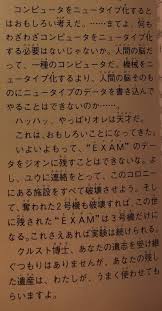 コンピュータをニュータイプ化すると
はおもしろい考えだ。……まてよ、何も
わざわざコンピュータをニュータイプ化
する必要はないじゃないか。人間の脳だ
って、一種のコンピュータだ。機械をニ
ュータイプ化するより、人間の脳そのも
のにニュータイプのデータを書き込んで
やることはできないのか……。
ハッハッ、やっぱりオレは天才だ。
これは、おもしろいことになってきた。
いよいよもって、“EXAM”のデー
タをジオンに残すことはできないな。よ
し、ユウに連絡をとって、このコロニー
にある施設をすべて破壊させよう。そし
て、奪われた2号機も破壊すれば、この世
に残された“EXAM”は3号機だけに
なる。これさえあれば実験は続けられる。
クルスト博士、あなたの遺志を受け継
ぐつもりはありませんが、あなたの残し
た遺産は、わたしが、うまく使わせても
らいますよ。